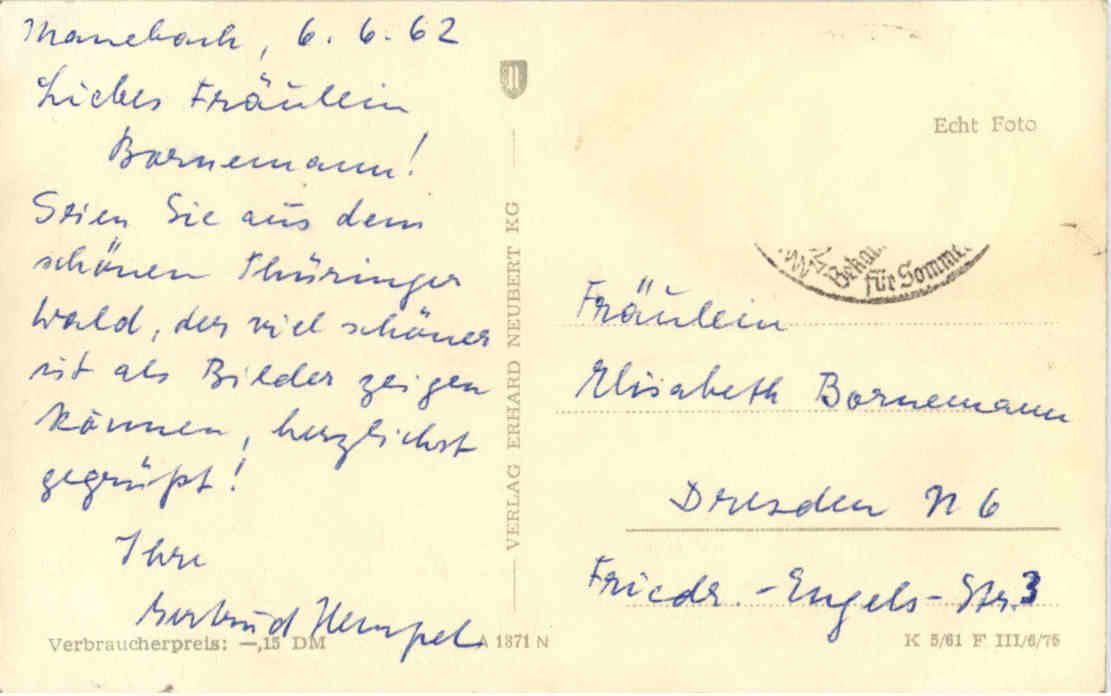 Manebach, 6. 6. 62
Liebes Fräulein
Bornemann!
Seien Sie aus dem
schönen Thüringer
Wald, der viel schöner
ist als Bilder zeigen
können, herzlichst
gegrüßt!
Ihre
Gertrud Hempel
Verbraucherpreis: —,15 DM
A 1371 N
VERLAG ERHARD NEUBERT KG
Echt Foto
für Somme
Fräulein
Elisabeth Bornemann
Dresden N 6
Friedr.-Engels-Str. 3
K 5/61 F III/6/76